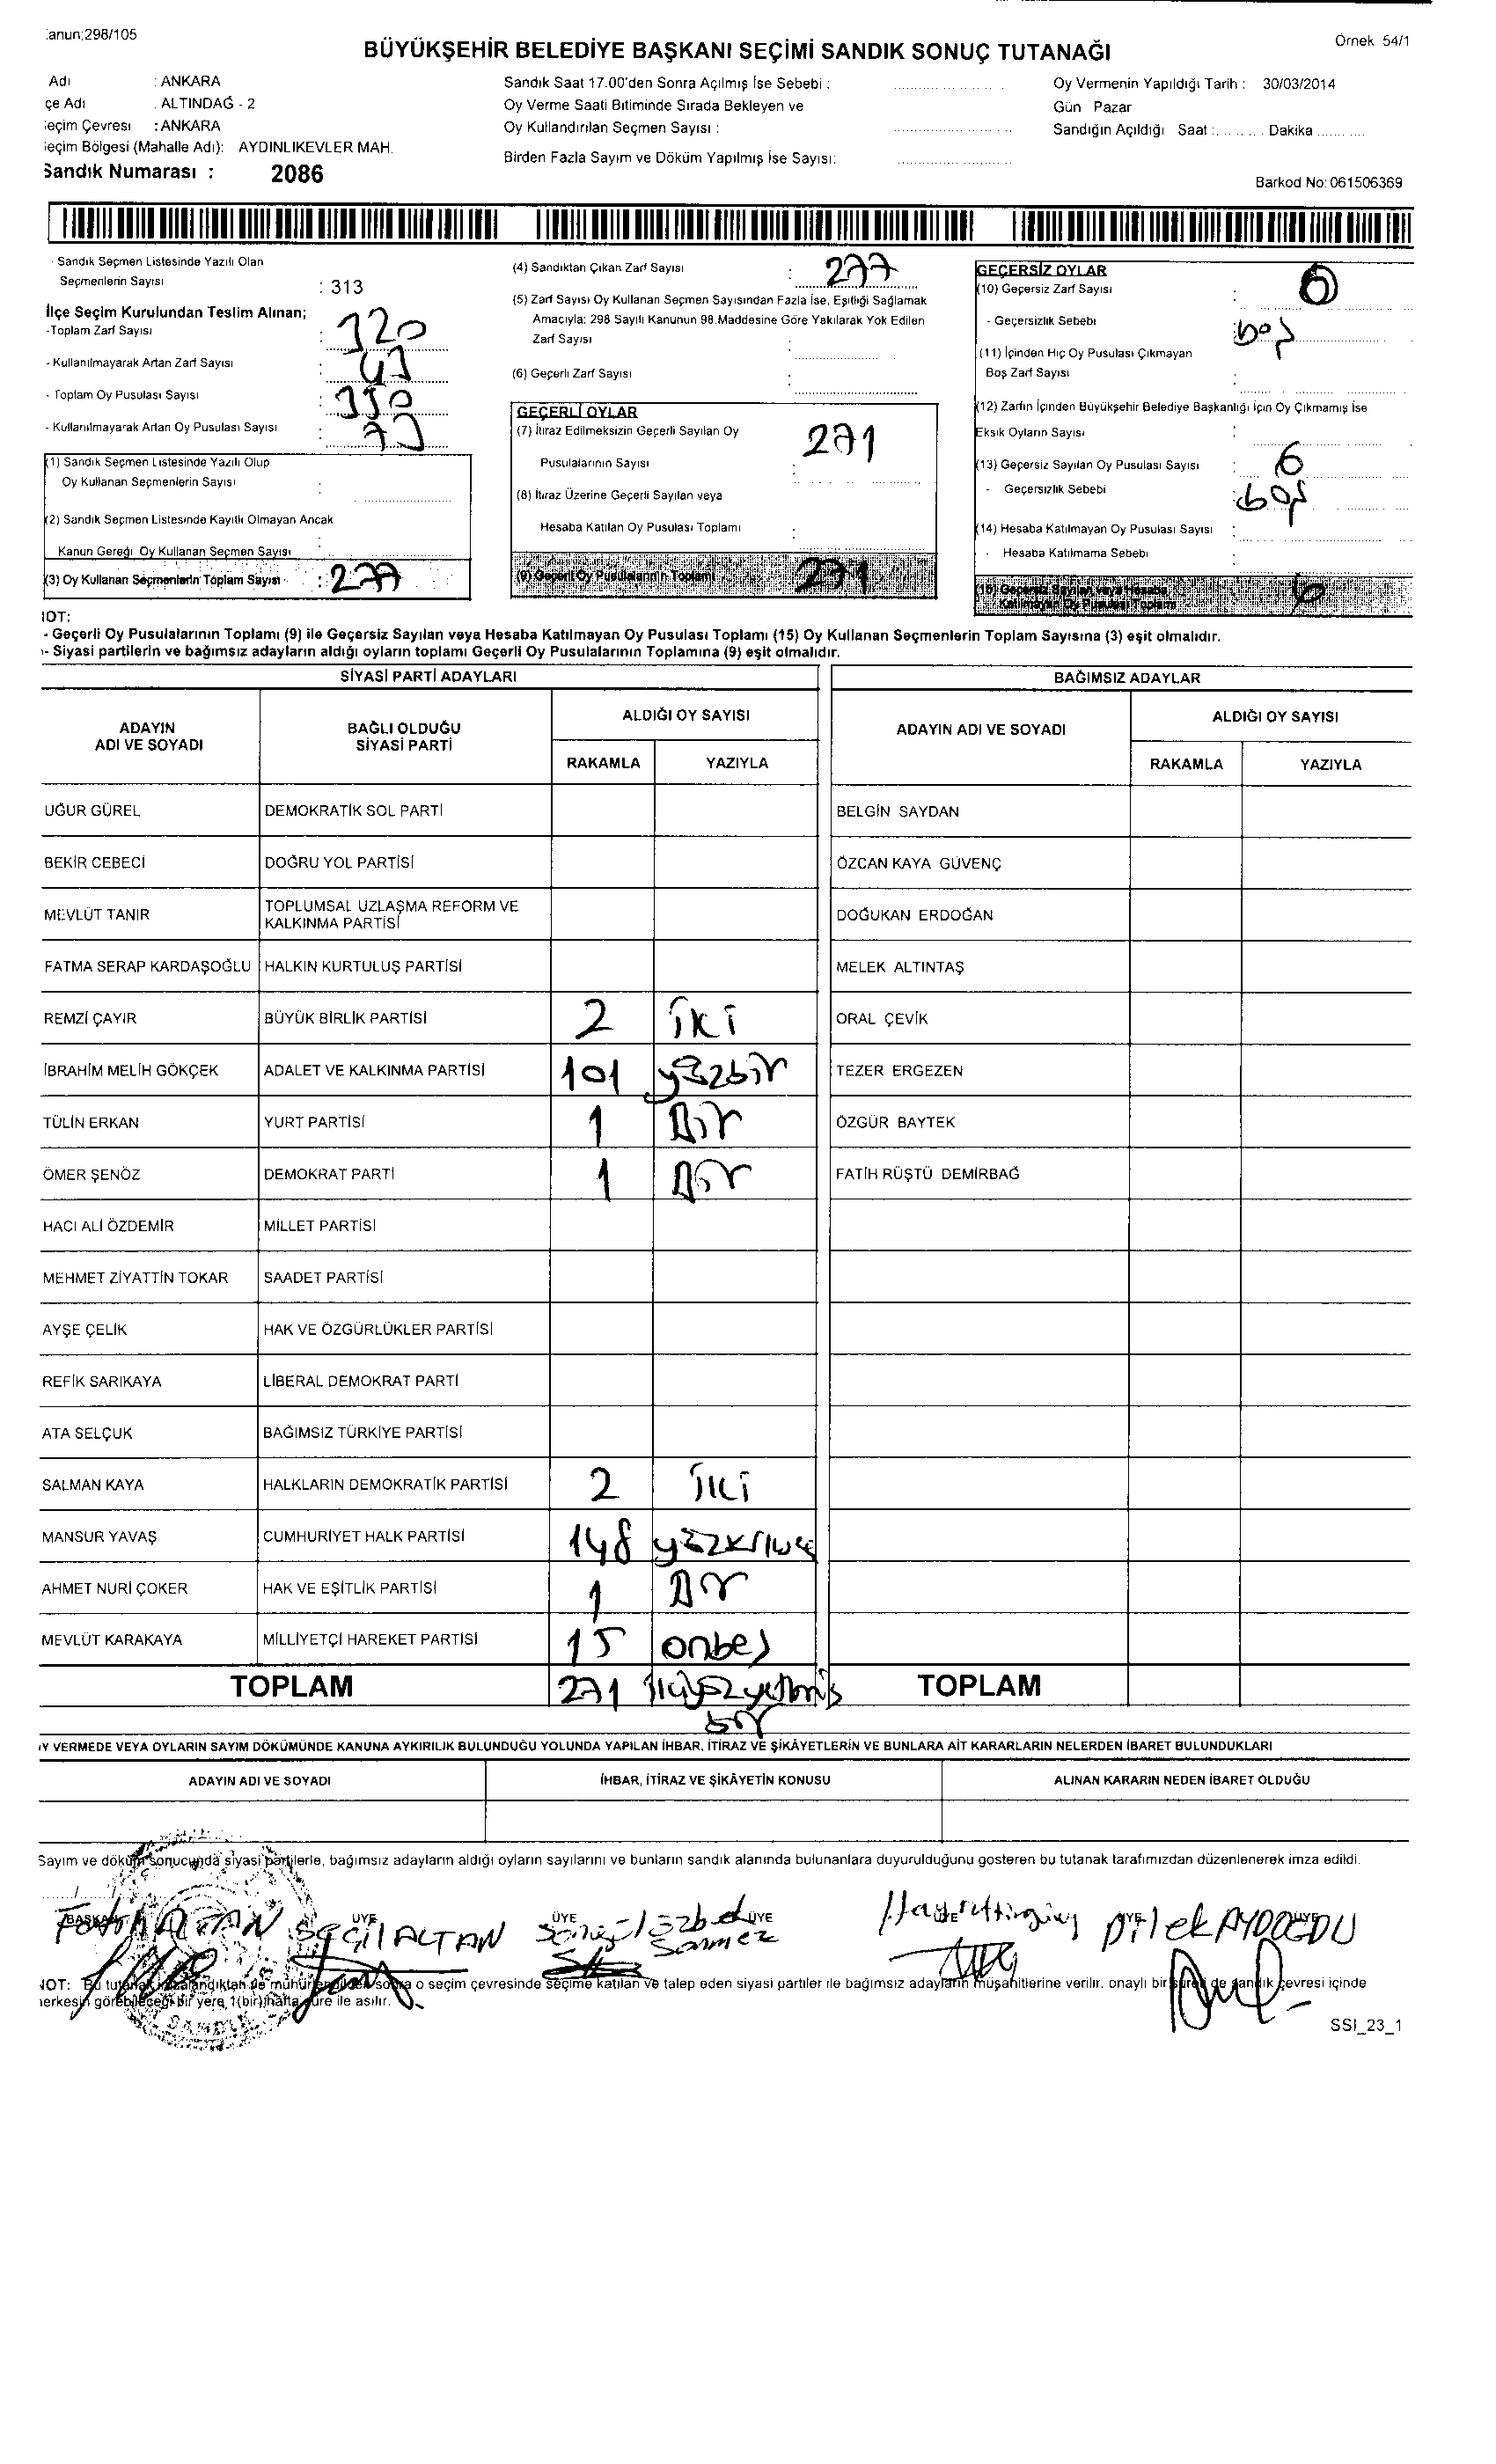 anun;298/105
Örnek 54/1
BÜYÜKŞEHİR BELEDİYE BAŞKANI SEÇİMİ SANDIK SONUÇ TUTANAĞI
Adı : ANKARA
çe Adı : ALTINDAĞ - 2
eçim Çevresi : ANKARA
eçim Bölgesi (Mahalle Adı): AYDINLIKEVLER MAH.
Sandık Numarası : 2086
Sandık Saat 17.00'den Sonra Açılmış İse Sebebi :
Oy Verme Saati Bitiminde Sırada Bekleyen ve
Oy Kullandırılan Seçmen Sayısı :
Birden Fazla Sayım ve Döküm Yapılmış İse Sayısı:
Oy Vermenin Yapıldığı Tarih : 30/03/2014
Gün Pazar
Sandığın Açıldığı Saat : Dakika
Barkod No: 061506369
- Sandık Seçmen Listesinde Yazılı Olan
Seçmenlerin Sayısı : 313
İlçe Seçim Kurulundan Teslim Alınan;
-Toplam Zarf Sayısı : 320
- Kullanılmayarak Artan Zarf Sayısı : 43
- Toplam Oy Pusulası Sayısı : 350
- Kullanılmayarak Artan Oy Pusulası Sayısı : 73
(1) Sandık Seçmen Listesinde Yazılı Olup
Oy Kullanan Seçmenlerin Sayısı :
(2) Sandık Seçmen Listesinde Kayıtlı Olmayan Ancak
Kanun Gereği Oy Kullanan Seçmen Sayısı :
(3) Oy Kullanan Seçmenlerin Toplam Sayısı : 277
(4) Sandıktan Çıkan Zarf Sayısı : 277
(5) Zarf Sayısı Oy Kullanan Seçmen Sayısından Fazla İse, Eşitliği Sağlamak
Amacıyla: 298 Sayılı Kanunun 98.Maddesine Göre Yakılarak Yok Edilen
Zarf Sayısı :
(6) Geçerli Zarf Sayısı :
GEÇERLİ OYLAR
(7) İtiraz Edilmeksizin Geçerli Sayılan Oy
Pusulalarının Sayısı : 271
(8) İtiraz Üzerine Geçerli Sayılan veya
Hesaba Katılan Oy Pusulası Toplamı :
(9) Geçerli Oy Pusulalarının Toplamı 271
GEÇERSİZ OYLAR
(10) Geçersiz Zarf Sayısı : 6
- Geçersizlik Sebebi : boş
(11) İçinden Hiç Oy Pusulası Çıkmayan
Boş Zarf Sayısı :
(12) Zarfın İçinden Büyükşehir Belediye Başkanlığı İçin Oy Çıkmamış İse
Eksik Oyların Sayısı :
(13) Geçersiz Sayılan Oy Pusulası Sayısı : 6
- Geçersizlik Sebebi : boş
(14) Hesaba Katılmayan Oy Pusulası Sayısı :
- Hesaba Katılmama Sebebi :
(15) Geçersiz Sayılan veya Hesaba
Katılmayan Oy Pusulası Toplamı 6
NOT:
- Geçerli Oy Pusulalarının Toplamı (9) ile Geçersiz Sayılan veya Hesaba Katılmayan Oy Pusulası Toplamı (15) Oy Kullanan Seçmenlerin Toplam Sayısına (3) eşit olmalıdır.
- Siyasi partilerin ve bağımsız adayların aldığı oyların toplamı Geçerli Oy Pusulalarının Toplamına (9) eşit olmalıdır.
SİYASİ PARTİ ADAYLARI
ADAYIN ADI VE SOYADI BAĞLI OLDUĞU SİYASİ PARTİ ALDIĞI OY SAYISI
RAKAMLA YAZIYLA
BAĞIMSIZ ADAYLAR
ADAYIN ADI VE SOYADI ALDIĞI OY SAYISI
RAKAMLA YAZIYLA
UĞUR GÜREL DEMOKRATİK SOL PARTİ BELGİN SAYDAN
BEKİR CEBECİ DOĞRU YOL PARTİSİ ÖZCAN KAYA GÜVENÇ
MEVLÜT TANIR TOPLUMSAL UZLAŞMA REFORM VE KALKINMA PARTİSİ DOĞUKAN ERDOĞAN
FATMA SERAP KARDAŞOĞLU HALKIN KURTULUŞ PARTİSİ MELEK ALTINTAŞ
REMZİ ÇAYIR BÜYÜK BİRLİK PARTİSİ 2 iki ORAL ÇEVİK
İBRAHİM MELİH GÖKÇEK ADALET VE KALKINMA PARTİSİ 101 yüzbir TEZER ERGEZEN
TÜLİN ERKAN YURT PARTİSİ 1 Bir ÖZGÜR BAYTEK
ÖMER ŞENÖZ DEMOKRAT PARTİ 1 Bir FATİH RÜŞTÜ DEMİRBAĞ
HACI ALİ ÖZDEMİR MİLLET PARTİSİ
MEHMET ZİYATTİN TOKAR SAADET PARTİSİ
AYŞE ÇELİK HAK VE ÖZGÜRLÜKLER PARTİSİ
REFİK SARIKAYA LİBERAL DEMOKRAT PARTİ
ATA SELÇUK BAĞIMSIZ TÜRKİYE PARTİSİ
SALMAN KAYA HALKLARIN DEMOKRATİK PARTİSİ 2 iki
MANSUR YAVAŞ CUMHURİYET HALK PARTİSİ 148
AHMET NURİ ÇOKER HAK VE EŞİTLİK PARTİSİ 1 Bir
MEVLÜT KARAKAYA MİLLİYETÇİ HAREKET PARTİSİ 15 onbeş
TOPLAM 271 ikiyüzyetmiş TOPLAM
bir
Y VERMEDE VEYA OYLARIN SAYIM DÖKÜMÜNDE KANUNA AYKIRILIK BULUNDUĞU YOLUNDA YAPILAN İHBAR, İTİRAZ VE ŞİKÂYETLERİN VE BUNLARA AİT KARARLARIN NELERDEN İBARET BULUNDUKLARI
ADAYIN ADI VE SOYADI İHBAR, İTİRAZ VE ŞİKÂYETİN KONUSU ALINAN KARARIN NEDEN İBARET OLDUĞU
Sayım ve döküm sonucunda siyasi partilerle, bağımsız adayların aldığı oyların sayılarını ve bunların sandık alanında bulunanlara duyurulduğunu gösteren bu tutanak tarafımızdan düzenlenerek imza edildi.
BAŞKAN ÜYE ÜYE ÜYE ÜYE ÜYE ÜYE
SEÇİL ALTAN Sönmez Dilek AYDOĞDU
NOT: Bu tutanak imzalandıktan ve mühürlendikten sonra o seçim çevresinde seçime katılan ve talep eden siyasi partiler ile bağımsız adayların müşahitlerine verilir. onaylı bir sureti de sandık çevresi içinde
herkesin görebileceği bir yere 1(bir) hafta süre ile asılır.
SANDIK
SSI_23_1